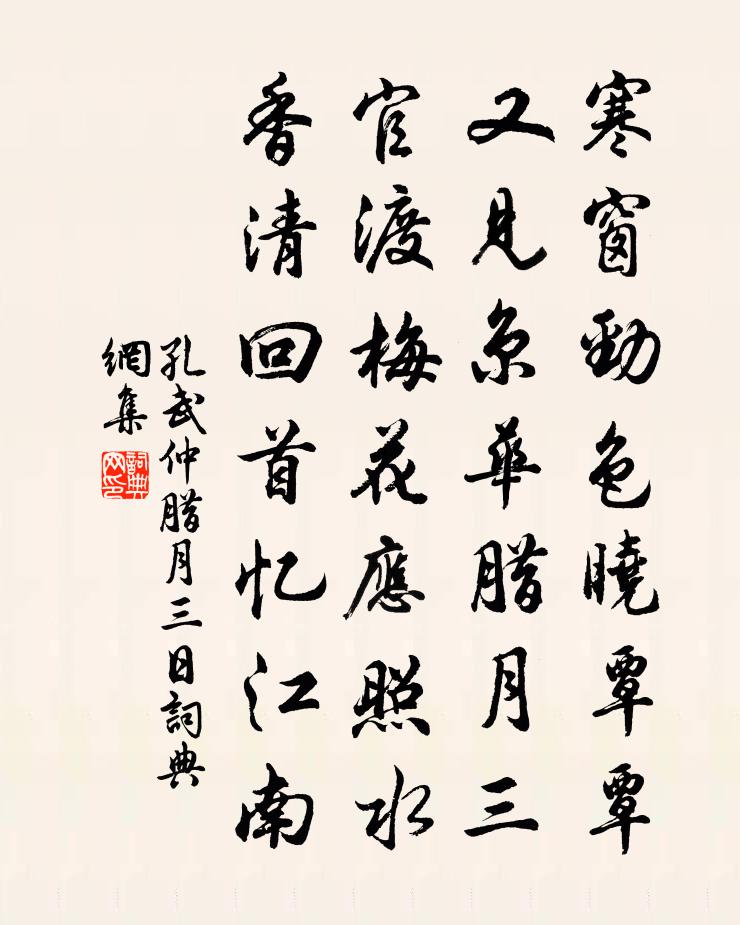 寒窗勁色曉覃覃
又見京華腊月三
官渡梅花應照水
香清回首忆江南
孔武仲腊月三日詞典
網集
詞典網印